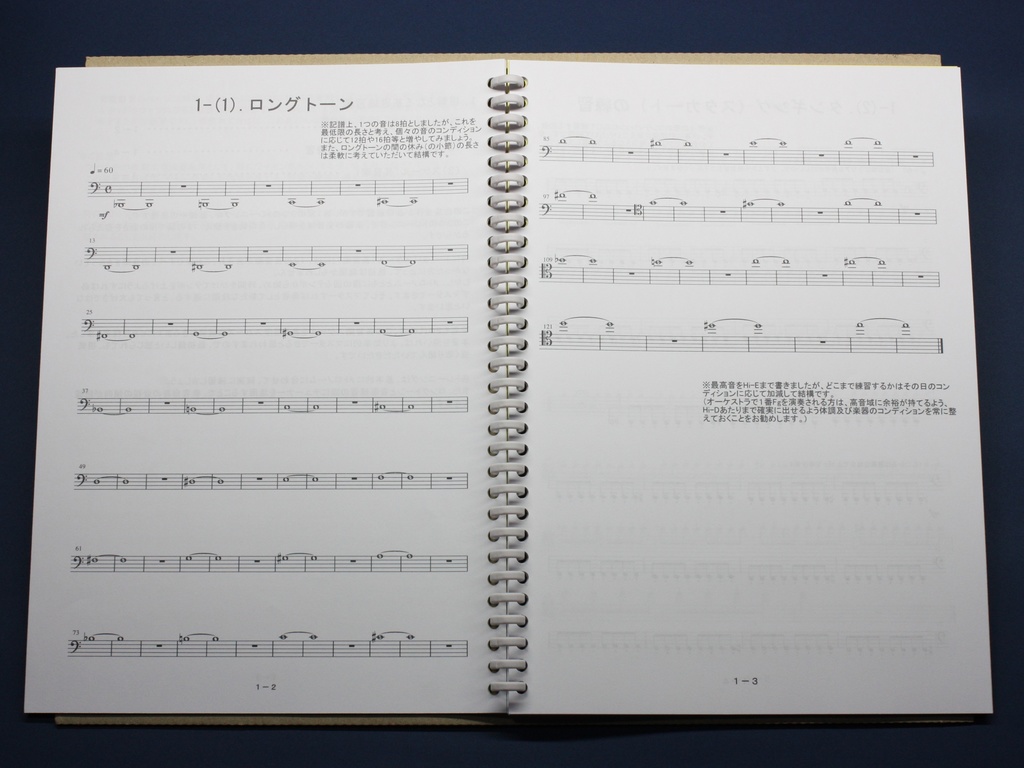 1-(1). ロングトーン
※記譜上、1つの音は8拍としましたが、これを
最低限の長さと考え、個々の音のコンディション
に応じて12拍や16拍等と増やしてみましょう。
また、ロングトーンの間の休み(の小節)の長さ
は柔軟に考えていただいて結構です。
♩= 60
mf
13
25
37
49
61
73
1－2
97
109
121
※最高音をHi-Eまで書きましたが、どこまで練習するかはその日のコン
ディションに応じて加減して結構です。
(オーケストラで1番Fgを演奏される方は、高音域に余裕が持てるよう、
Hi-Dあたりまで確実に出せるよう体調及び楽器のコンディションを常に整
えておくことをお勧めします。)
1－3